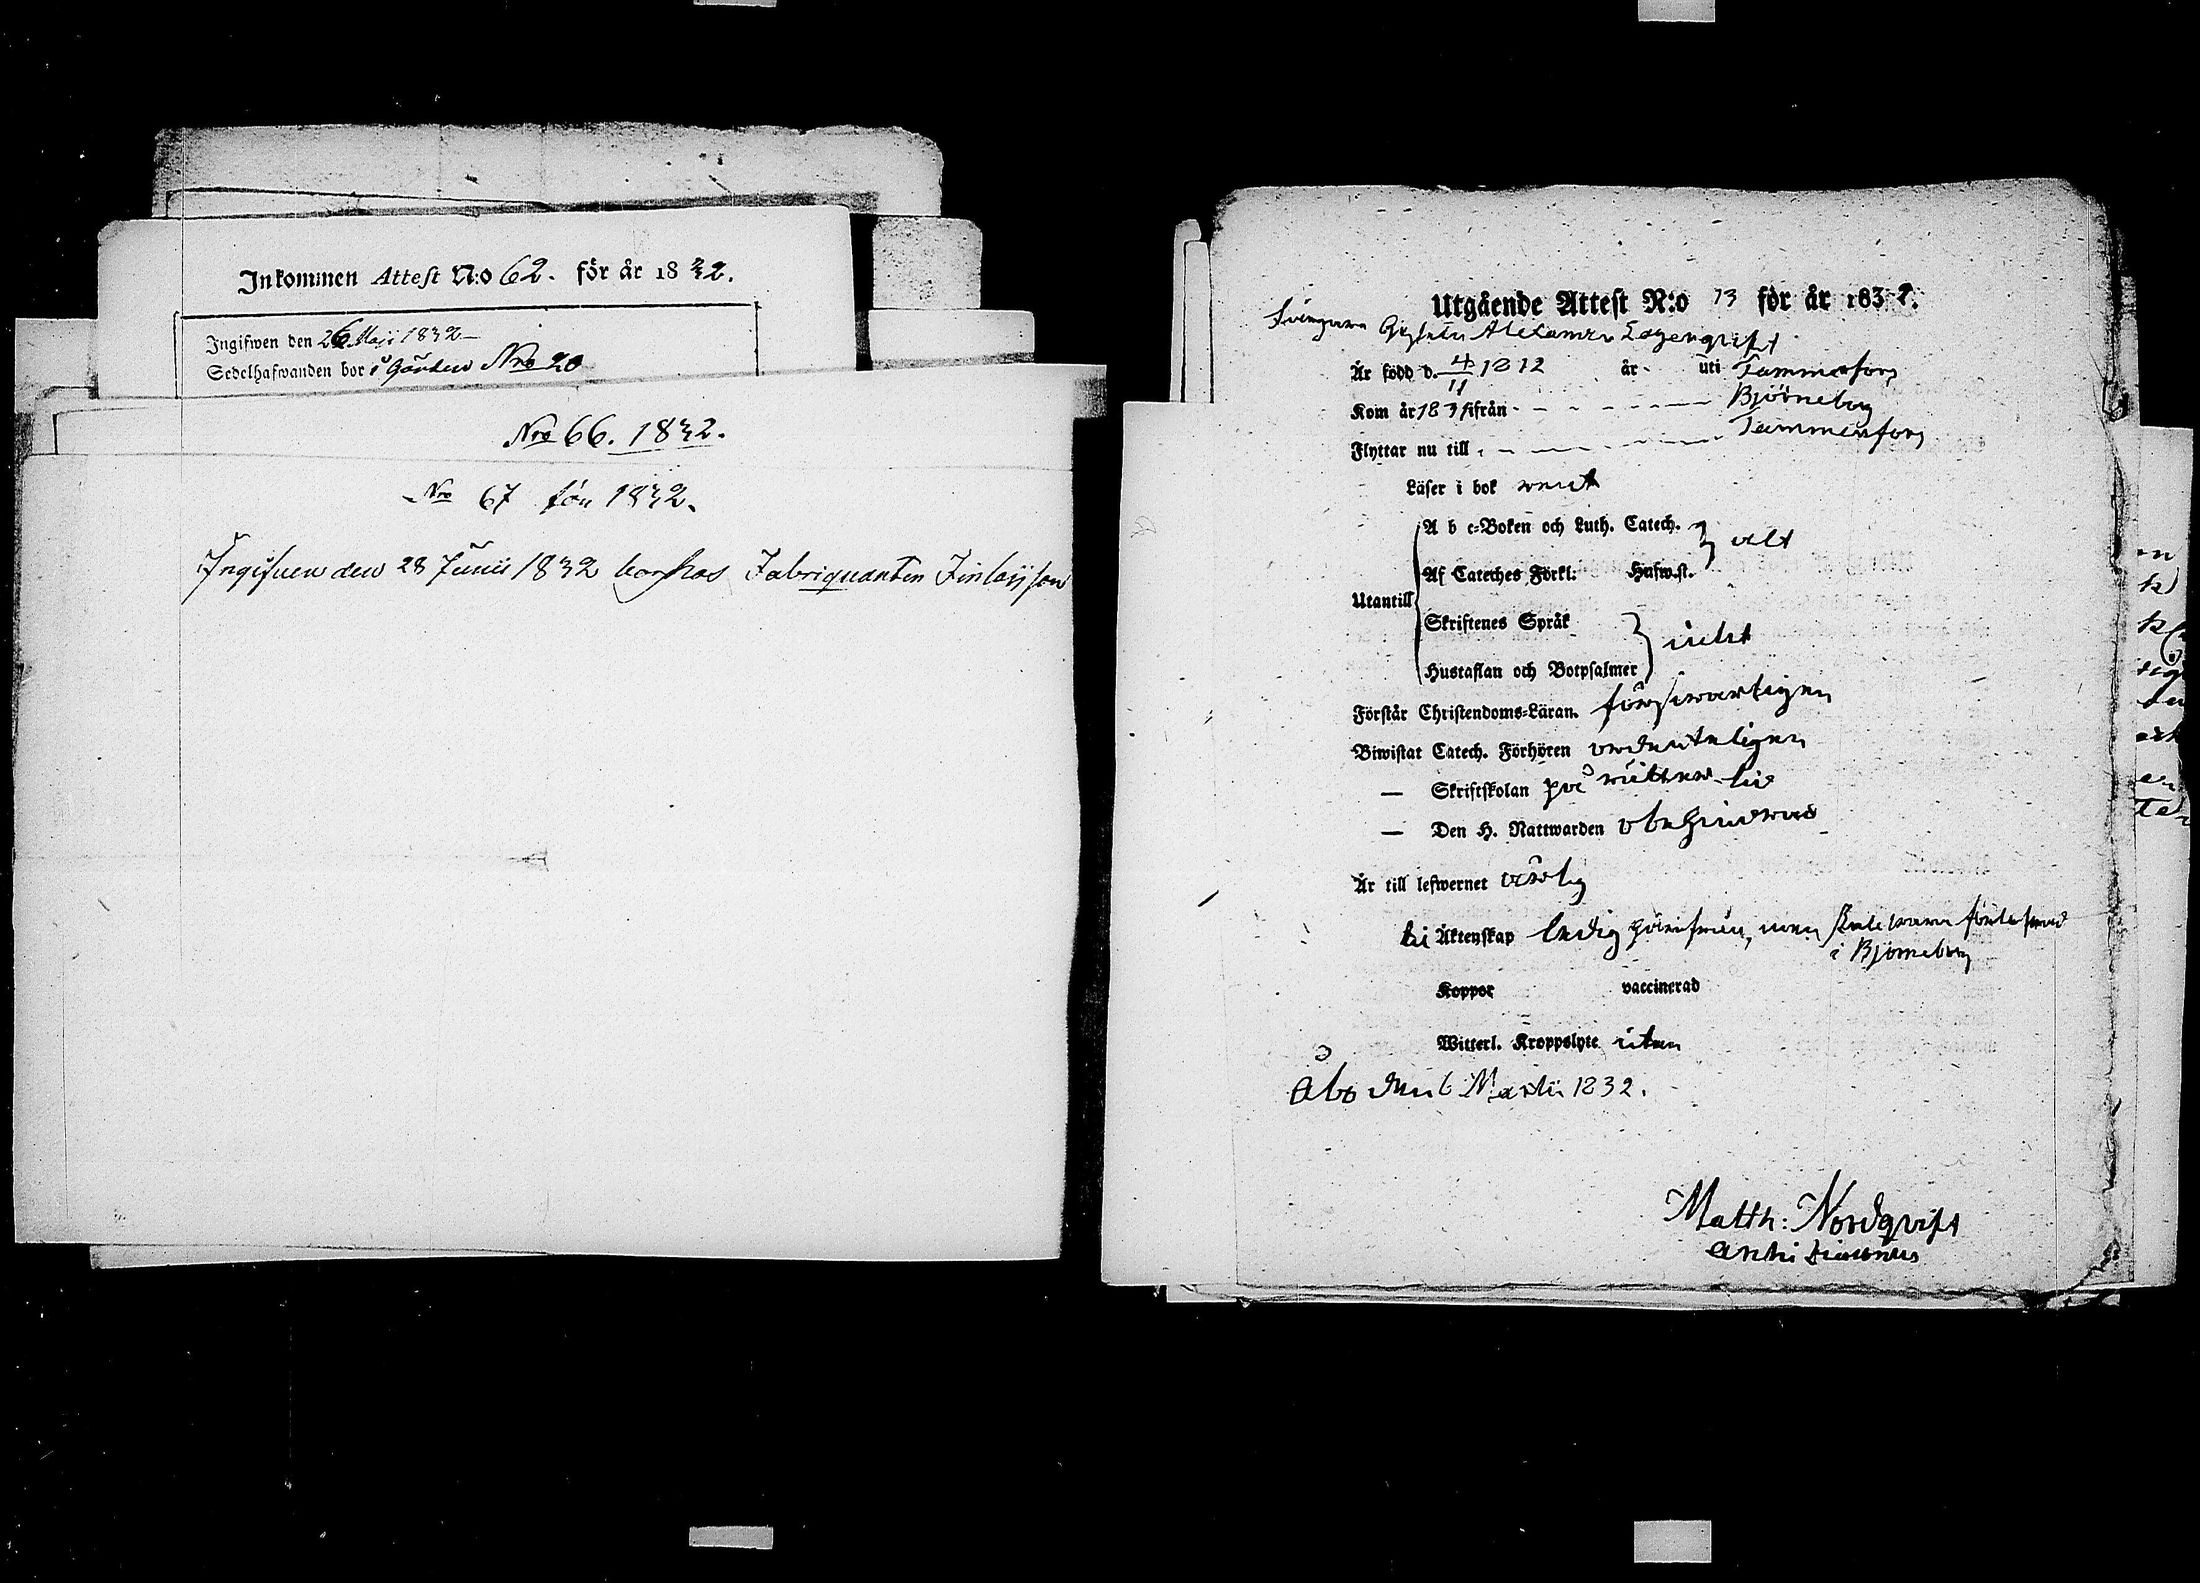 Inkommen Attest N:o 62. för år 1832.
Ingifwen den 26 Maji 1832
Sedelhafwanden bor i Gården Nro 20
Nro 66. 1832.
Nro 67 för 1832.
Ingifven den 28 Junii 1832 bor hos Fabriquanten Finlayson
Utgående Attest N:o 73 för år 1832.
Alexander Lagerqvist
Är född d. 4/11 1812 år uti Tammerfors
Kom år 1831 ifrån Björneborg
Flyttar nu till Tammerfors
Läser i bok rent
A b c-Boken och Luth. Catech.
allt
Af Cateches Förkl. Husw.st.
Utantill
Skriftenes Språk
intet
Hustaflan och Botpsalmer
Förstår Christendoms-Läran. försvarligen
Biwistat Catech. Förhören ordenteligen
— Skriftskolan på rättan tid
— Den H. Nattwarden obehindrad
Är till lefwernet ärlig
till Äktenskap ledig härifrån, men
i Björneborg
Koppor vaccinerad
Witterl. Kroppslyte utan
Åbo den 6 Martii 1832.
Matth: Nordqvist